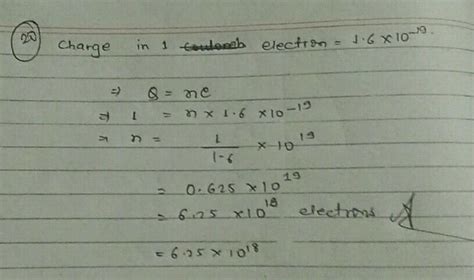 20 Charge in 1 electron = 1.6 × 10⁻¹⁹
⇒ Q = ne
⇒ 1 = n × 1.6 × 10⁻¹⁹
⇒ n = 1/1.6 × 10¹⁹
= 0.625 × 10¹⁹
= 6.25 × 10¹⁸ electrons
= 6.25 × 10¹⁸